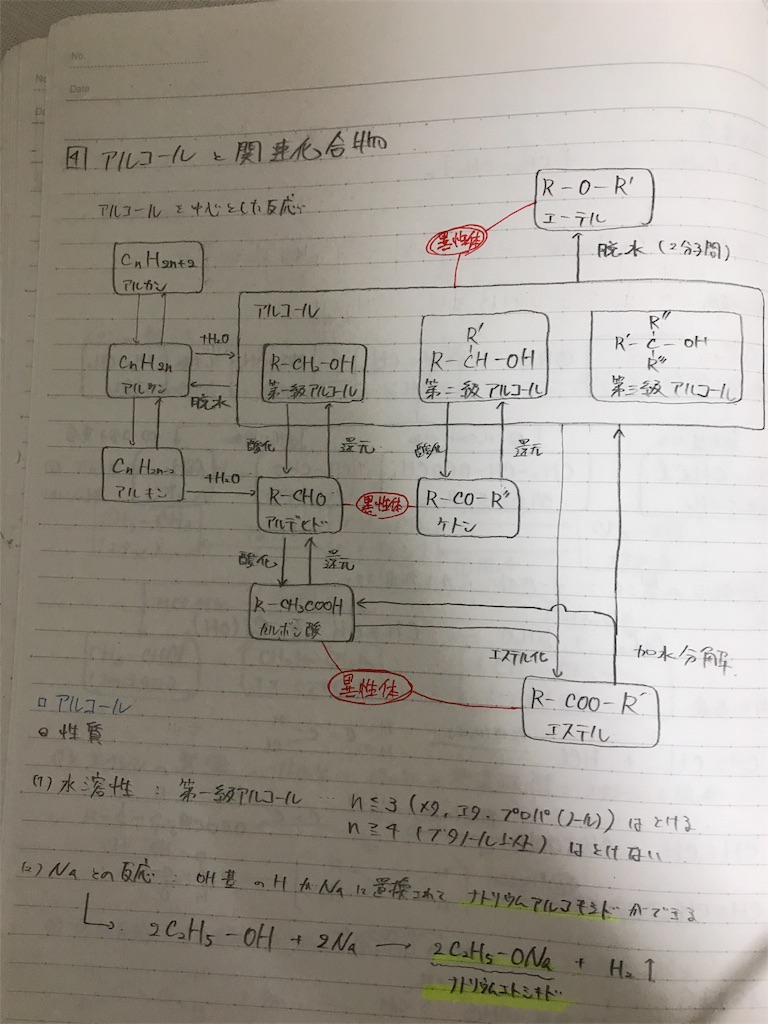 No.
Date
4 アルコールと関連化合物
アルコールを中心とした反応
R-O-R'
エーテル
異性体
脱水(2分子間)
CnH2n+2
アルカン
アルコール
+H2O
CnH2n
アルケン
脱水
R-CH2-OH
第一級アルコール
R'
R-CH-OH
第二級アルコール
R''
R'-C-OH
R''
第三級アルコール
酸化
還元
酸化
還元
CnH2n-2
アルキン
+H2O
R-CHO
アルデヒド
異性体
R-CO-R''
ケトン
酸化
還元
R-CH2COOH
カルボン酸
エステル化
加水分解
異性体
R-COO-R'
エステル
アルコール
性質
(1) 水溶性 : 第一級アルコール … n≦3 (メタ, エタ, プロパ(ノール)) はとける
n≧4 (ブタノール以上) はとけない
(2) Naとの反応 : OH基のHがNaに置換されて ナトリウムアルコキシドができる
2C2H5-OH + 2Na → 2C2H5-ONa + H2↑
ナトリウムエトキシド